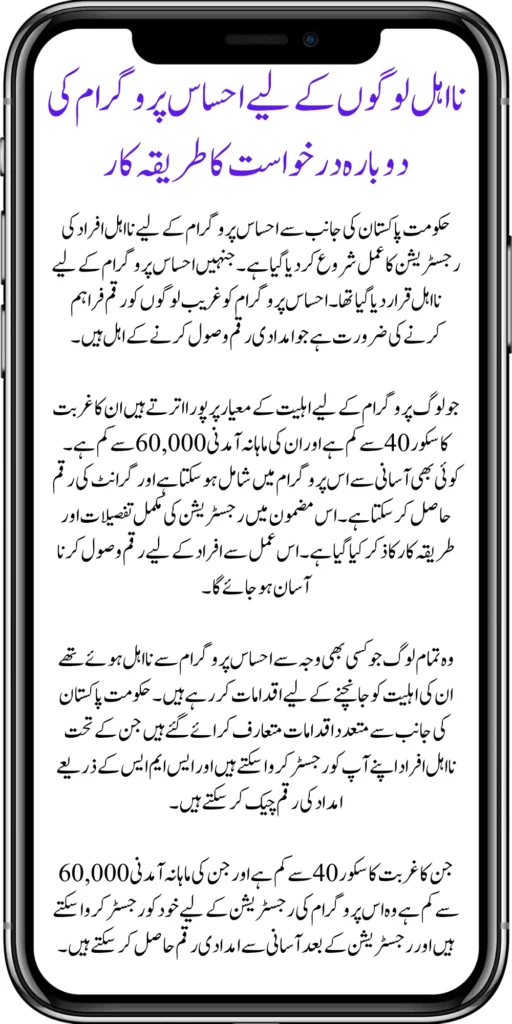 نااہل لوگوں کے لیے احساس پروگرام کی
دوبارہ درخواست کا طریقہ کار
حکومت پاکستان کی جانب سے احساس پروگرام کے لیے نااہل افراد کی
رجسٹریشن کا عمل شروع کر دیا گیا ہے۔ جنہیں احساس پروگرام کے لیے
نااہل قرار دیا گیا تھا۔ احساس پروگرام کو غریب لوگوں کو رقم فراہم
کرنے کی ضرورت ہے جو امدادی رقم وصول کرنے کے اہل ہیں۔
جو لوگ پروگرام کے لیے اہلیت کے معیار پر پورا اترتے ہیں ان کا غربت
کا سکور 40 سے کم ہے اور ان کی ماہانہ آمدنی 60,000 سے کم ہے۔
کوئی بھی آسانی سے اس پروگرام میں شامل ہو سکتا ہے اور گرانٹ کی رقم
حاصل کر سکتا ہے۔ اس مضمون میں رجسٹریشن کی مکمل تفصیلات اور
طریقہ کار کا ذکر کیا گیا ہے۔ اس عمل سے افراد کے لیے رقم وصول کرنا
آسان ہو جائے گا۔
وہ تمام لوگ جو کسی بھی وجہ سے احساس پروگرام سے نااہل ہوئے تھے
ان کی اہلیت کو جانچنے کے لیے اقدامات کر رہے ہیں۔ حکومت پاکستان
کی جانب سے متعدد اقدامات متعارف کرائے گئے ہیں جن کے تحت
نااہل افراد اپنے آپ کو رجسٹر کروا سکتے ہیں اور ایس ایم ایس کے ذریعے
امداد کی رقم چیک کر سکتے ہیں۔
جن کا غربت کا سکور 40 سے کم ہے اور جن کی ماہانہ آمدنی 60,000
سے کم ہے وہ اس پروگرام کی رجسٹریشن کے لیے خود کو رجسٹر کروا سکتے
ہیں اور رجسٹریشن کے بعد آسانی سے امدادی رقم حاصل کر سکتے ہیں۔